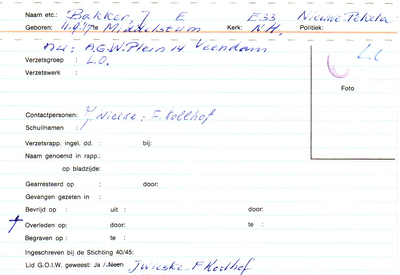 Naam etc.: Bakker, J E E33 Nieuwe Pekela
Geboren: 11.9.17 te Middelstum Kerk: N.H. Politiek:
nu: A.G.W. Plein 14 Veendam
Verzetsgroep : L.O.
Verzetswerk :
Foto
Contactpersonen:
Schuilnamen :
Verzetsrapp. ingel. dd. : bij:
Naam genoemd in rapp.:
op bladzijde:
Gearresteerd op : door:
Gevangen gezeten in :
Bevrijd op : uit : door:
Overleden op: : door: te :
Begraven op : te :
Ingeschreven bij de Stichting 40/45:
Lid G.O.I.W. geweest: Ja / Neen